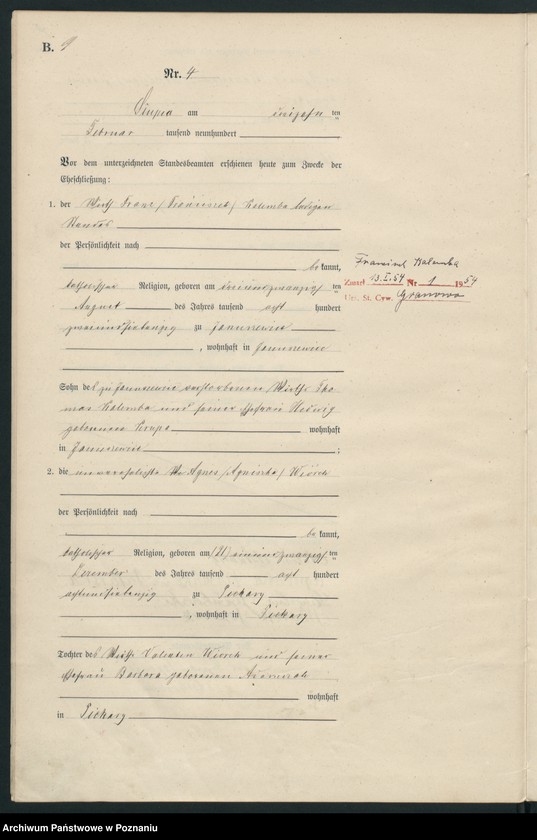 B. 9
Nr. 4
am ten
Februar tausend neunhundert
Vor dem unterzeichneten Standesbeamten erschienen heute zum Zwecke der
Eheschließung:
1. der Wirth Franz /Franciszek/ Kalemba ledigen
Standes
der Persönlichkeit nach
bekannt,
katholischer Religion, geboren am ten
August des Jahres tausend acht hundert
zweiundsiebenzig zu
, wohnhaft in
Sohn des zu verstorbenen Wirths Tho
mas Kalemba und seiner Ehefrau Hedwig
geborenen wohnhaft
in ;
2. die unverehelichte Agnes /Agnieszka/
der Persönlichkeit nach
bekannt,
katholischer Religion, geboren am (21) einundzwanzigsten
Dezember des Jahres tausend acht hundert
achtundsiebenzig zu Piekary
, wohnhaft in Piekary
Tochter des Wirths Valentin und seiner
Ehefrau Barbara geborenen
wohnhaft
in Piekary
Franciszek Kalemba
Zmarł 13.I.54 Nr 9 1954
Urz. St. Cyw. Granowo
Archiwum Państwowe w Poznaniu